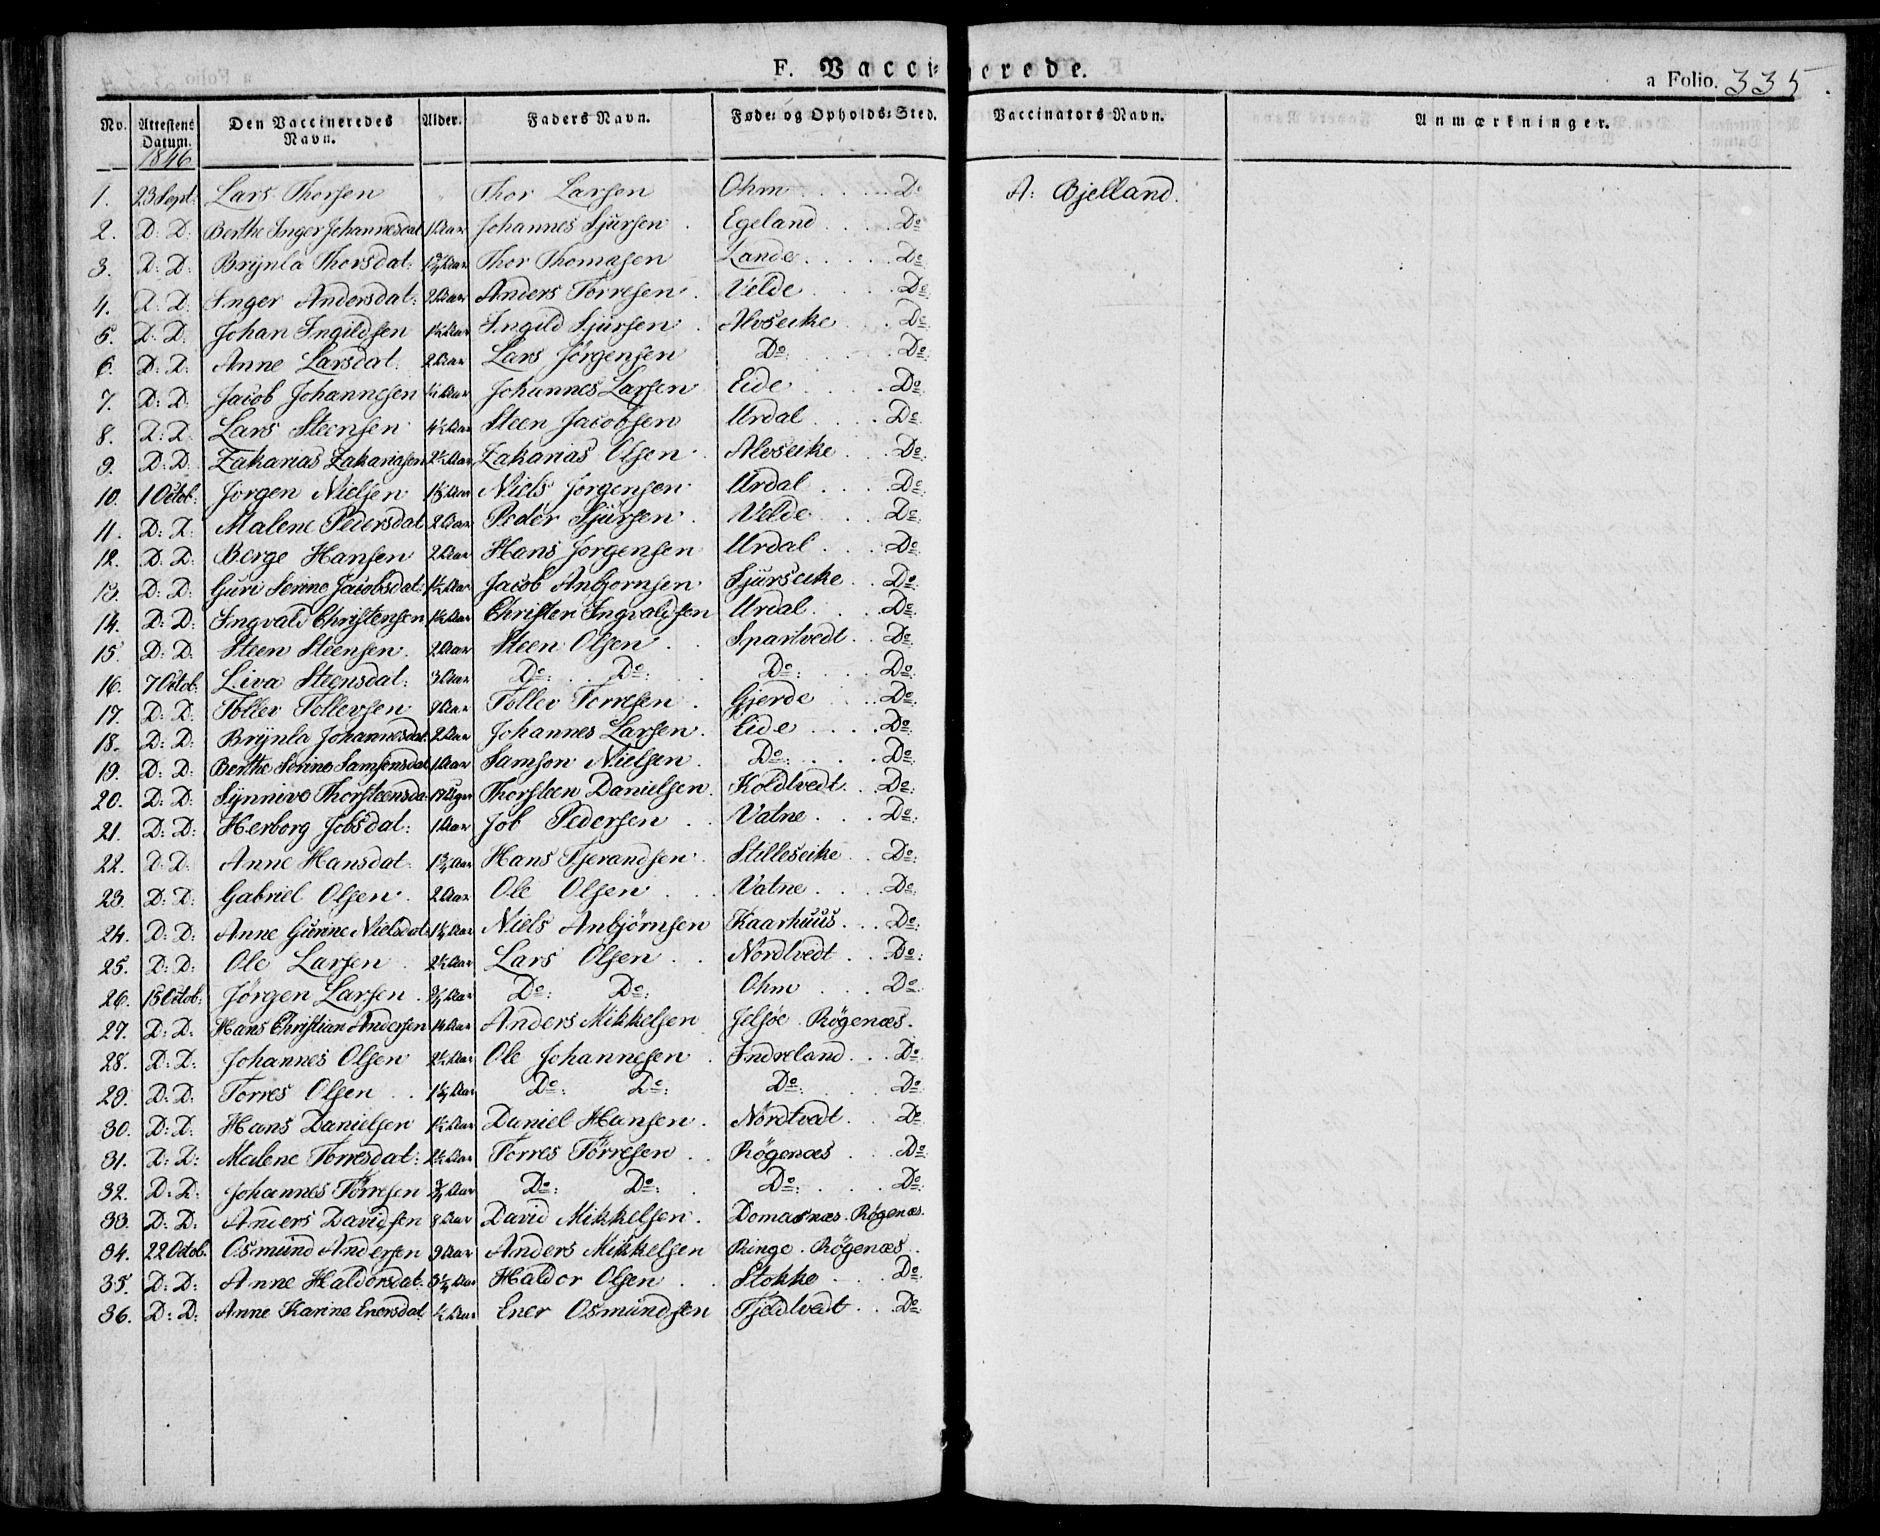 F. Vaccinerede.
a Folio. 335.
No. Attestens Datum. Den Vaccineredes Navn. Alder. Faders Navn. Føde- og Opholds-Sted. Vaccinators Navn. Anmærkninger.
1846
1. 23 Sept: Lars Thorsen Thor Larsen Ohm Do A: Bjelland.
2. D: D: Berthe Inger Johannesdat 1 Aar Johannes Sjursen Egeland Do
3. D: D: Brynla Thorsdat: Aar Thor Thomasen Lande Do
4. D: D: Inger Andersdat: 2 Aar Anders Torresen Velde Do
5. D: D: Johan Ingildsen Aar Ingild Sjursen Alvseike Do
6. D: D: Anne Larsdat: 2 Aar Lars Jørgensen Do: Do
7. D: D: Jacob Johannesen Aar Johannes Larsen Eide Do
8. D: D: Lars Steensen 4½ Aar Steen Jacobsen Urdal Do
9. D: D: Zakarias Zakariasen 2½ Aar Zakarias Olsen Alvseike Do
10. 1 Octob: Jorgen Nielsen Aar Niels Jorgensen Urdal Do
11. D: D: Malene Pedersdat 2 Aar Peder Sjursen Velde Do
12. D: D: Berge Hansen 2 Aar Hans Jorgensen Urdal Do
13. D: D: Guri Serine Jacobsdat: Aar Jacob Anbjornsen Sjurseike Do
14. D: D: Ingvald Christensen Aar Christen Ingvaldsen Urdal Do
15. D: D: Steen Steensen 2 Aar Steen Olsen Spartvedt Do
16. 7 Octob: Liva Steensdat: 3 Aar Do: Do: Do: Do
17. D: D: Tollev Tollevsen Aar Tollev Torresen Gjerde Do
18. D: D: Brynla Johannesdat 2 Aar Johannes Larsen Eide Do
19. D: D: Berthe Serine Samsensdat 1 Aar Samson Nielsen Do: Do
20. D: D: Synnive Thorsteensda: Uger Thorsteen Danielsen Koldtvedt Do:
21. D: D: Herborg Jobsdat: 1 Aar Job Pedersen Vatne Do:
22. D: D: Anne Hansdat: 1¾ Aar Hans Tjerandsen Stilleseike Do:
23. D: D: Gabriel Olsen 2 Aar Ole Olsen Vatne Do:
24. D: D: Anne Gurine Nielsdat: Aar Niels Anbjørnsen Kaarhuus Do:
25. D: D: Ole Larsen 2½ Aar Lars Olsen Nordtvedt Do:
26. 15 Octob: Jørgen Larsen ¾ Aar Do: Do: Ohm Do
27. D: D: Hans Christian Andersen 14 Aar Anders Mikkelsen Jelsøe Røgenæs.
28. D: D: Johannes Olsen 2½ Aar Ole Johannesen Indreland Do
29. D: D: Torres Olsen Aar Do: Do: Do: Do
30. D: D: Hans Danielsen 1½ Aar Daniel Hansen Nordtvedt Do
31. D: D: Malene Torresdat: 2½ Aar Torres Torresen Røgenæs Do
32. D: D: Johannes Torresen ¾ Aar Do: Do: Do: Do
33. D: D: Anders Davidsen 8 Aar David Mikkelsen Domasnæs Røgenæs.
34. 22 Octob. Osmund Andersen 9 Aar Anders Mikkelsen Ringe Røgenæs
35. D: D: Anne Haldorsdat: 3¼ Aar Haldor Olsen Stokke Do
36. D: D: Anne Karine Enersdat ½ Aar Ener Osmundsen Fjeldtvedt Do